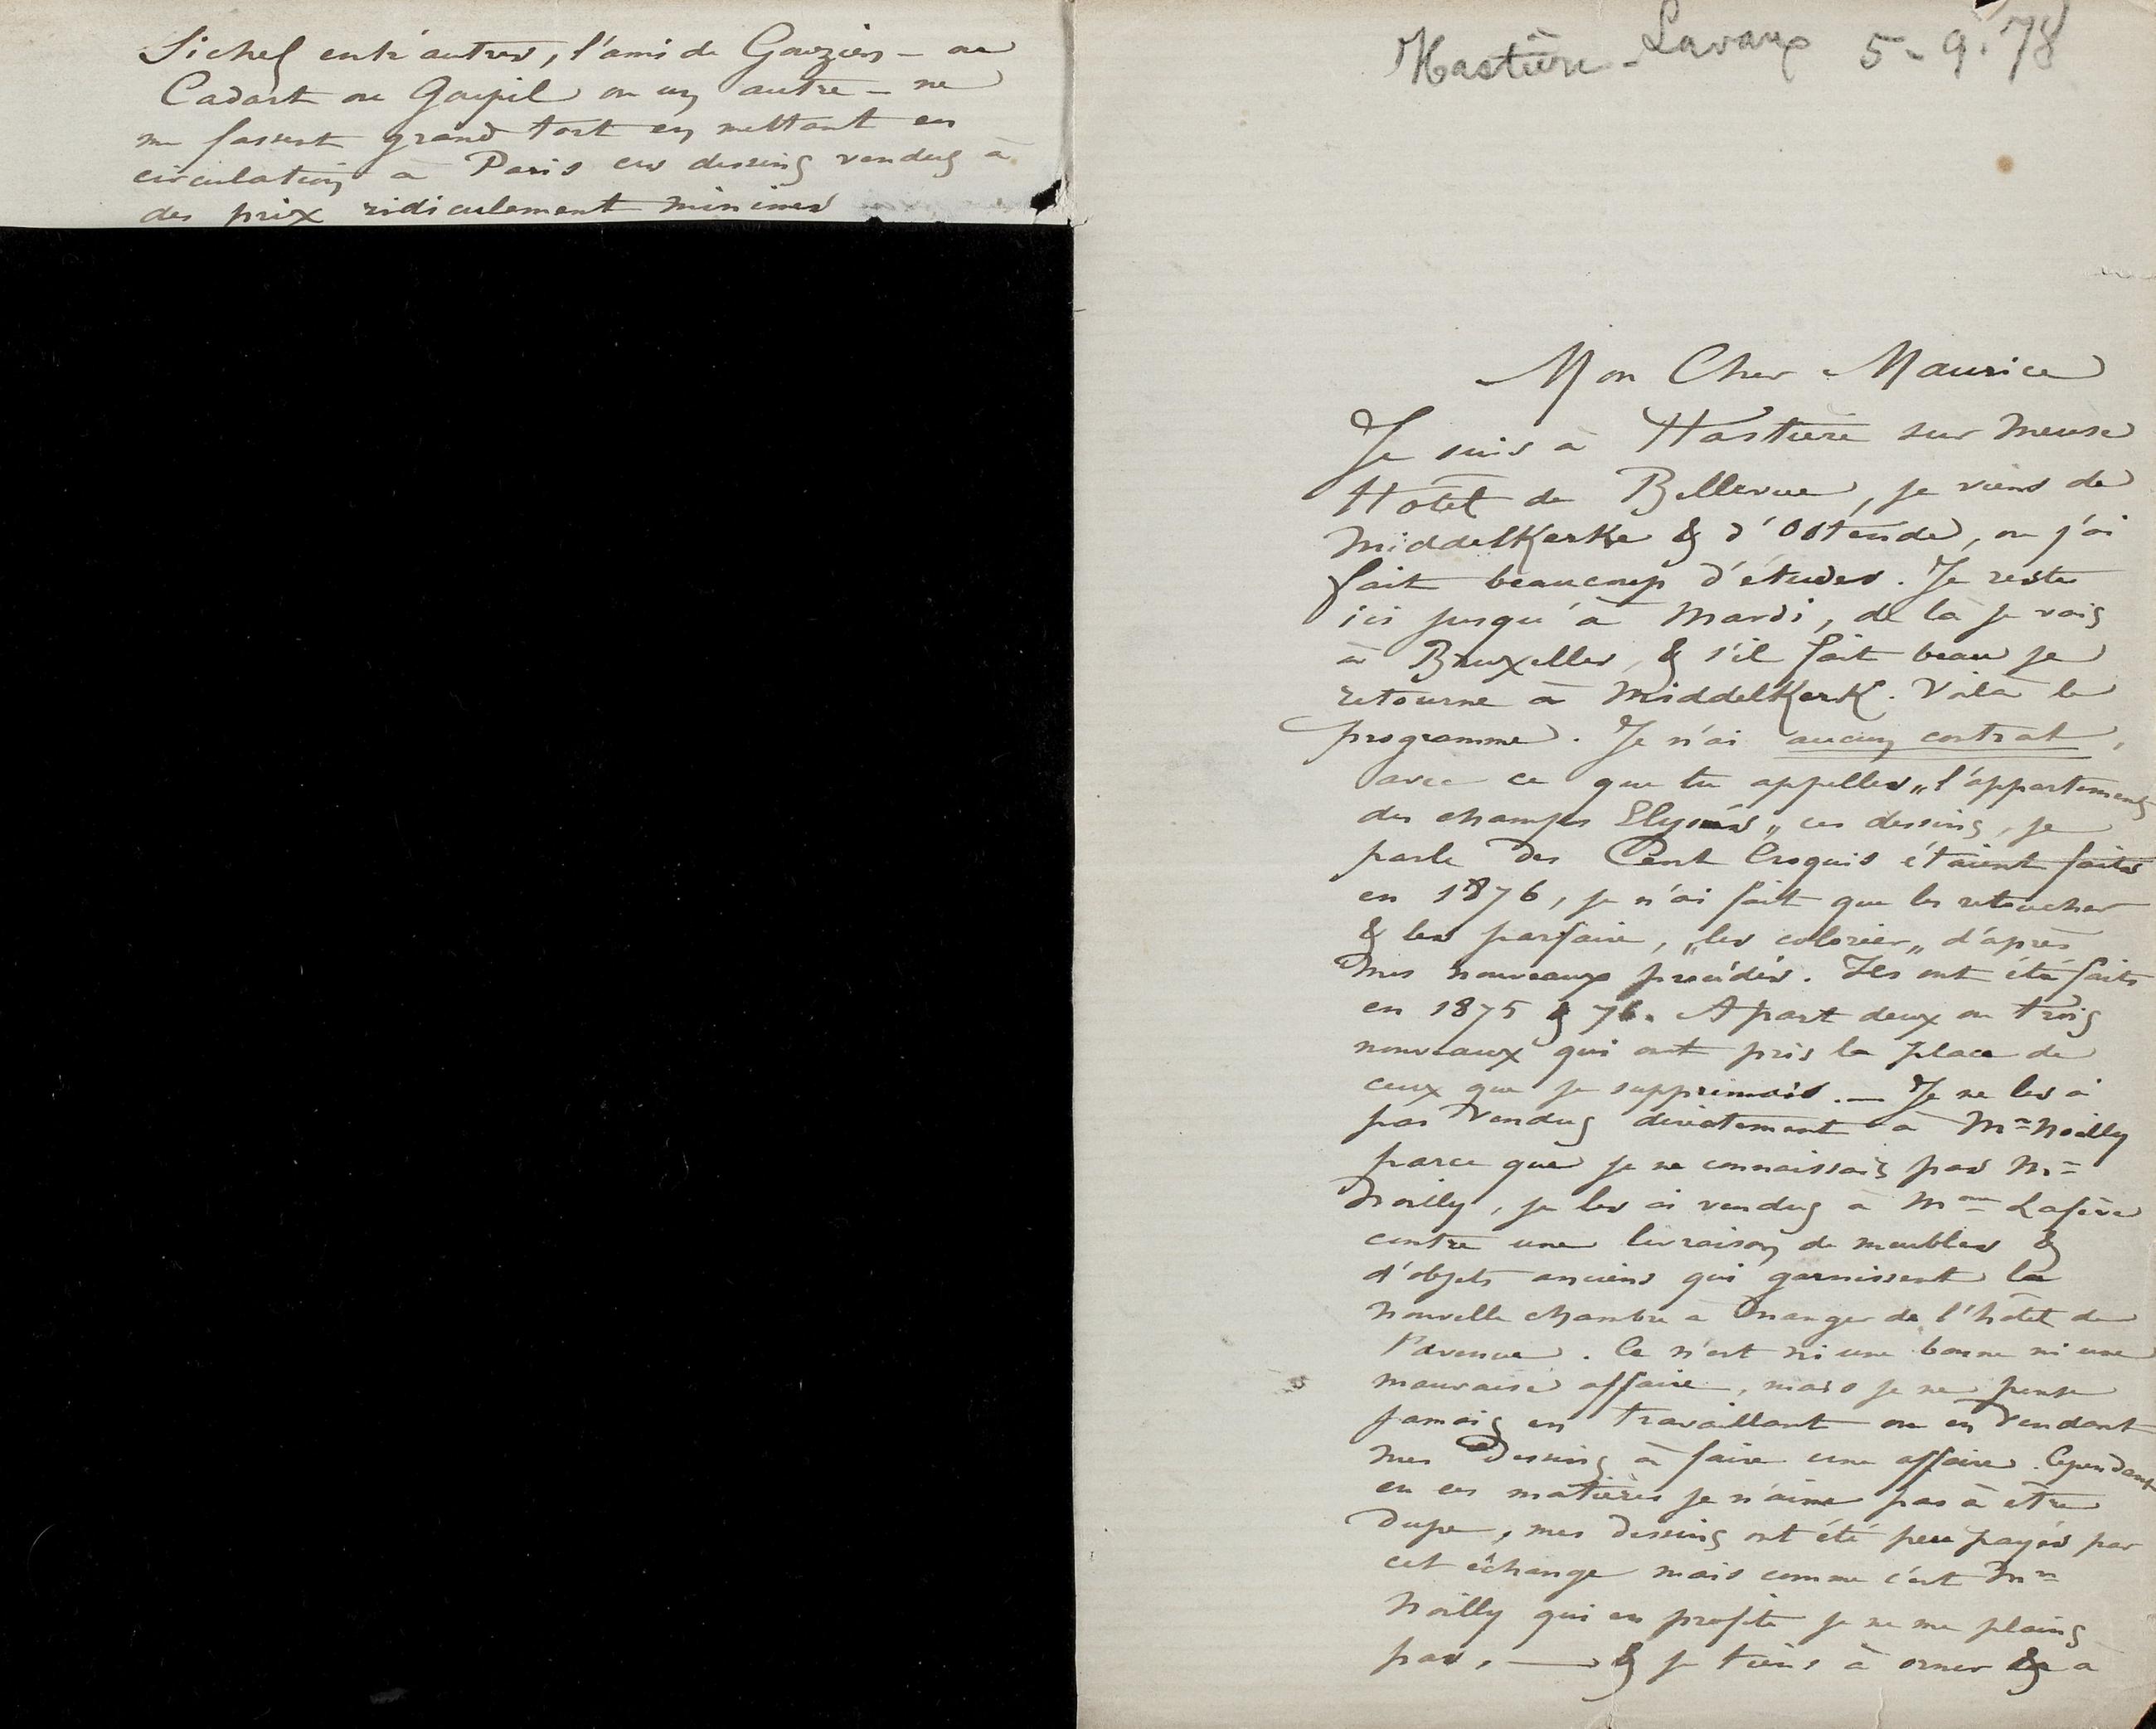 Sichel entr'autres, l'ami de Gouzien — ou
Cadart ou Goupil ou un autre — ne
me fassent grand tort en mettant en
circulation à Paris ces dessins vendus à
des prix ridiculement minimes
Hastière-Lavaux 5-9.78
Mon Cher Maurice
Je suis à Hastière sur Meuse
Hôtel de Bellevue, je viens de
Middelkerke & d'Ostende, ou j'ai
fait beaucoup d'études. Je reste
ici jusqu'à Mardi, de là je vais
à Bruxelles, & s'il fait beau je
retourne à Middelkerk. Voilà le
programme. Je n'ai aucun contrat,
avec ce que tu appelles „l'appartement
des champs Elysées„ ces dessins, je
parle des Cent Croquis étaient faits
en 1876, je n'ai fait que les retoucher
& les parfaire, „les colorier„ d'après
mes nouveaux procédés. Ils ont été faits
en 1875 & 76. A part deux ou trois
nouveaux qui ont pris la place de
ceux que je supprimais. — Je ne les ai
pas vendus directement à Mr Noilly
parce que je ne connaissais pas Mr
Noilly, je les ai vendus à Mme Lafève
contre une livraison de meubles &
d'objets anciens qui garnissent la
nouvelle chambre à manger de l'hôtel de
l'avenue. Ce n'est ni une bonne ni une
mauvaise affaire, mais je ne pense
jamais en travaillant ou en vendant
mes dessins à faire une affaire. Cependant
en ces matières je n'aime pas à être
dupe, mes dessins ont été peu payés par
cet échange mais comme c'est Mr
Noilly qui en profite je ne me plains
pas, — & je tiens à orner & à